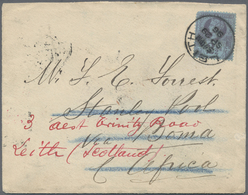 LEITH
Mr. F. E. Forrest
Stanley Pool
3, West Trinity Road
Via Boma
Leith (Scotland)
Africa